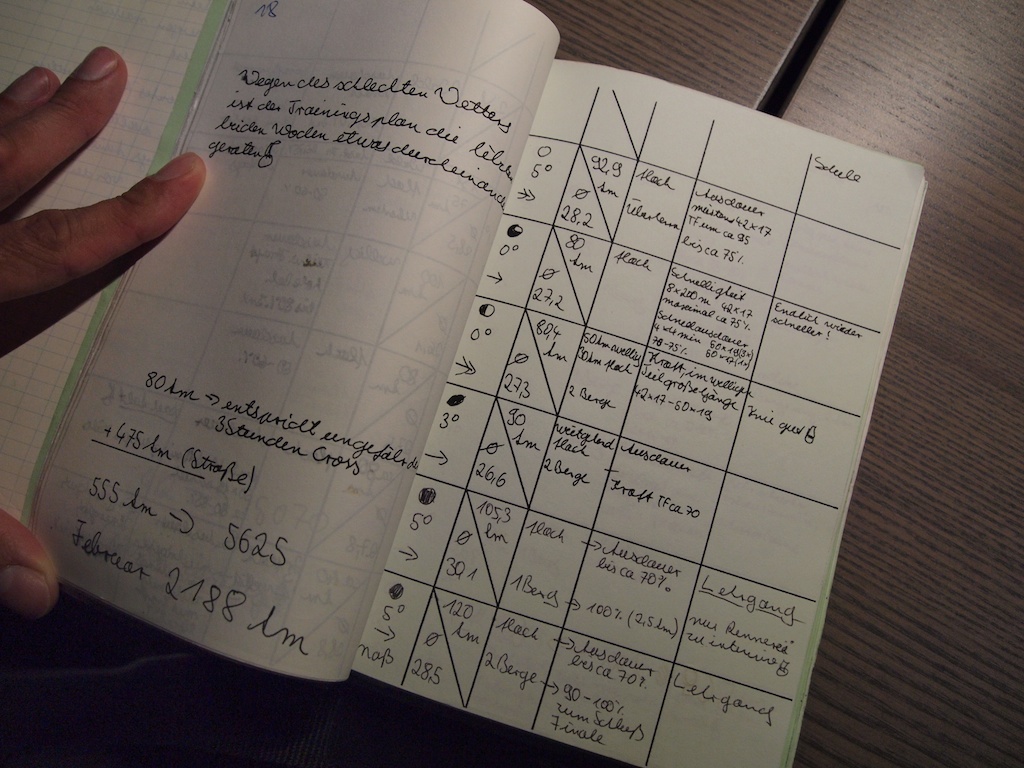 18
Wegen des schlechten Wetters
ist der Trainingsplan die
beiden Wochen etwas durcheinander
geraten
80 km → entspricht ungefähr
3 Stunden Cross
+ 475 km (Straße)
555 km → 5625
Februar 2188 km
Schule
5°
>>
92,9
km
Ø
28,2
flach
Ausdauer
meistens 42x17
TF um ca 95
bis ca 75%
0°
→
80
km
Ø
27,2
flach
Schnelligkeit
8x200m 42x17
maximal ca 75%
Schnellausdauer
4x4min
70-75%
Endlich wieder
schneller!
0°
>>
80,4
km
Ø
27,3
50km wellig
30km flach
2 Berge
Kraft im welligen
Teil große Gänge
42x17-50x19
Knie gut
3°
→
90
km
Ø
26,6
weitgehend
flach
2 Berge
Ausdauer
Kraft TF ca 70
5°
→
105,3
km
Ø
30,1
flach
1 Berg
→ Ausdauer
bis ca 70%
→ 100% (2,5km)
Lehrgang
nur Rennerei
zu intensiv
5°
→
naß
120
km
Ø
28,5
flach
2 Berge
→ Ausdauer
bis ca 70%
→ 90-100%
zum Schluß
Finale
Lehrgang